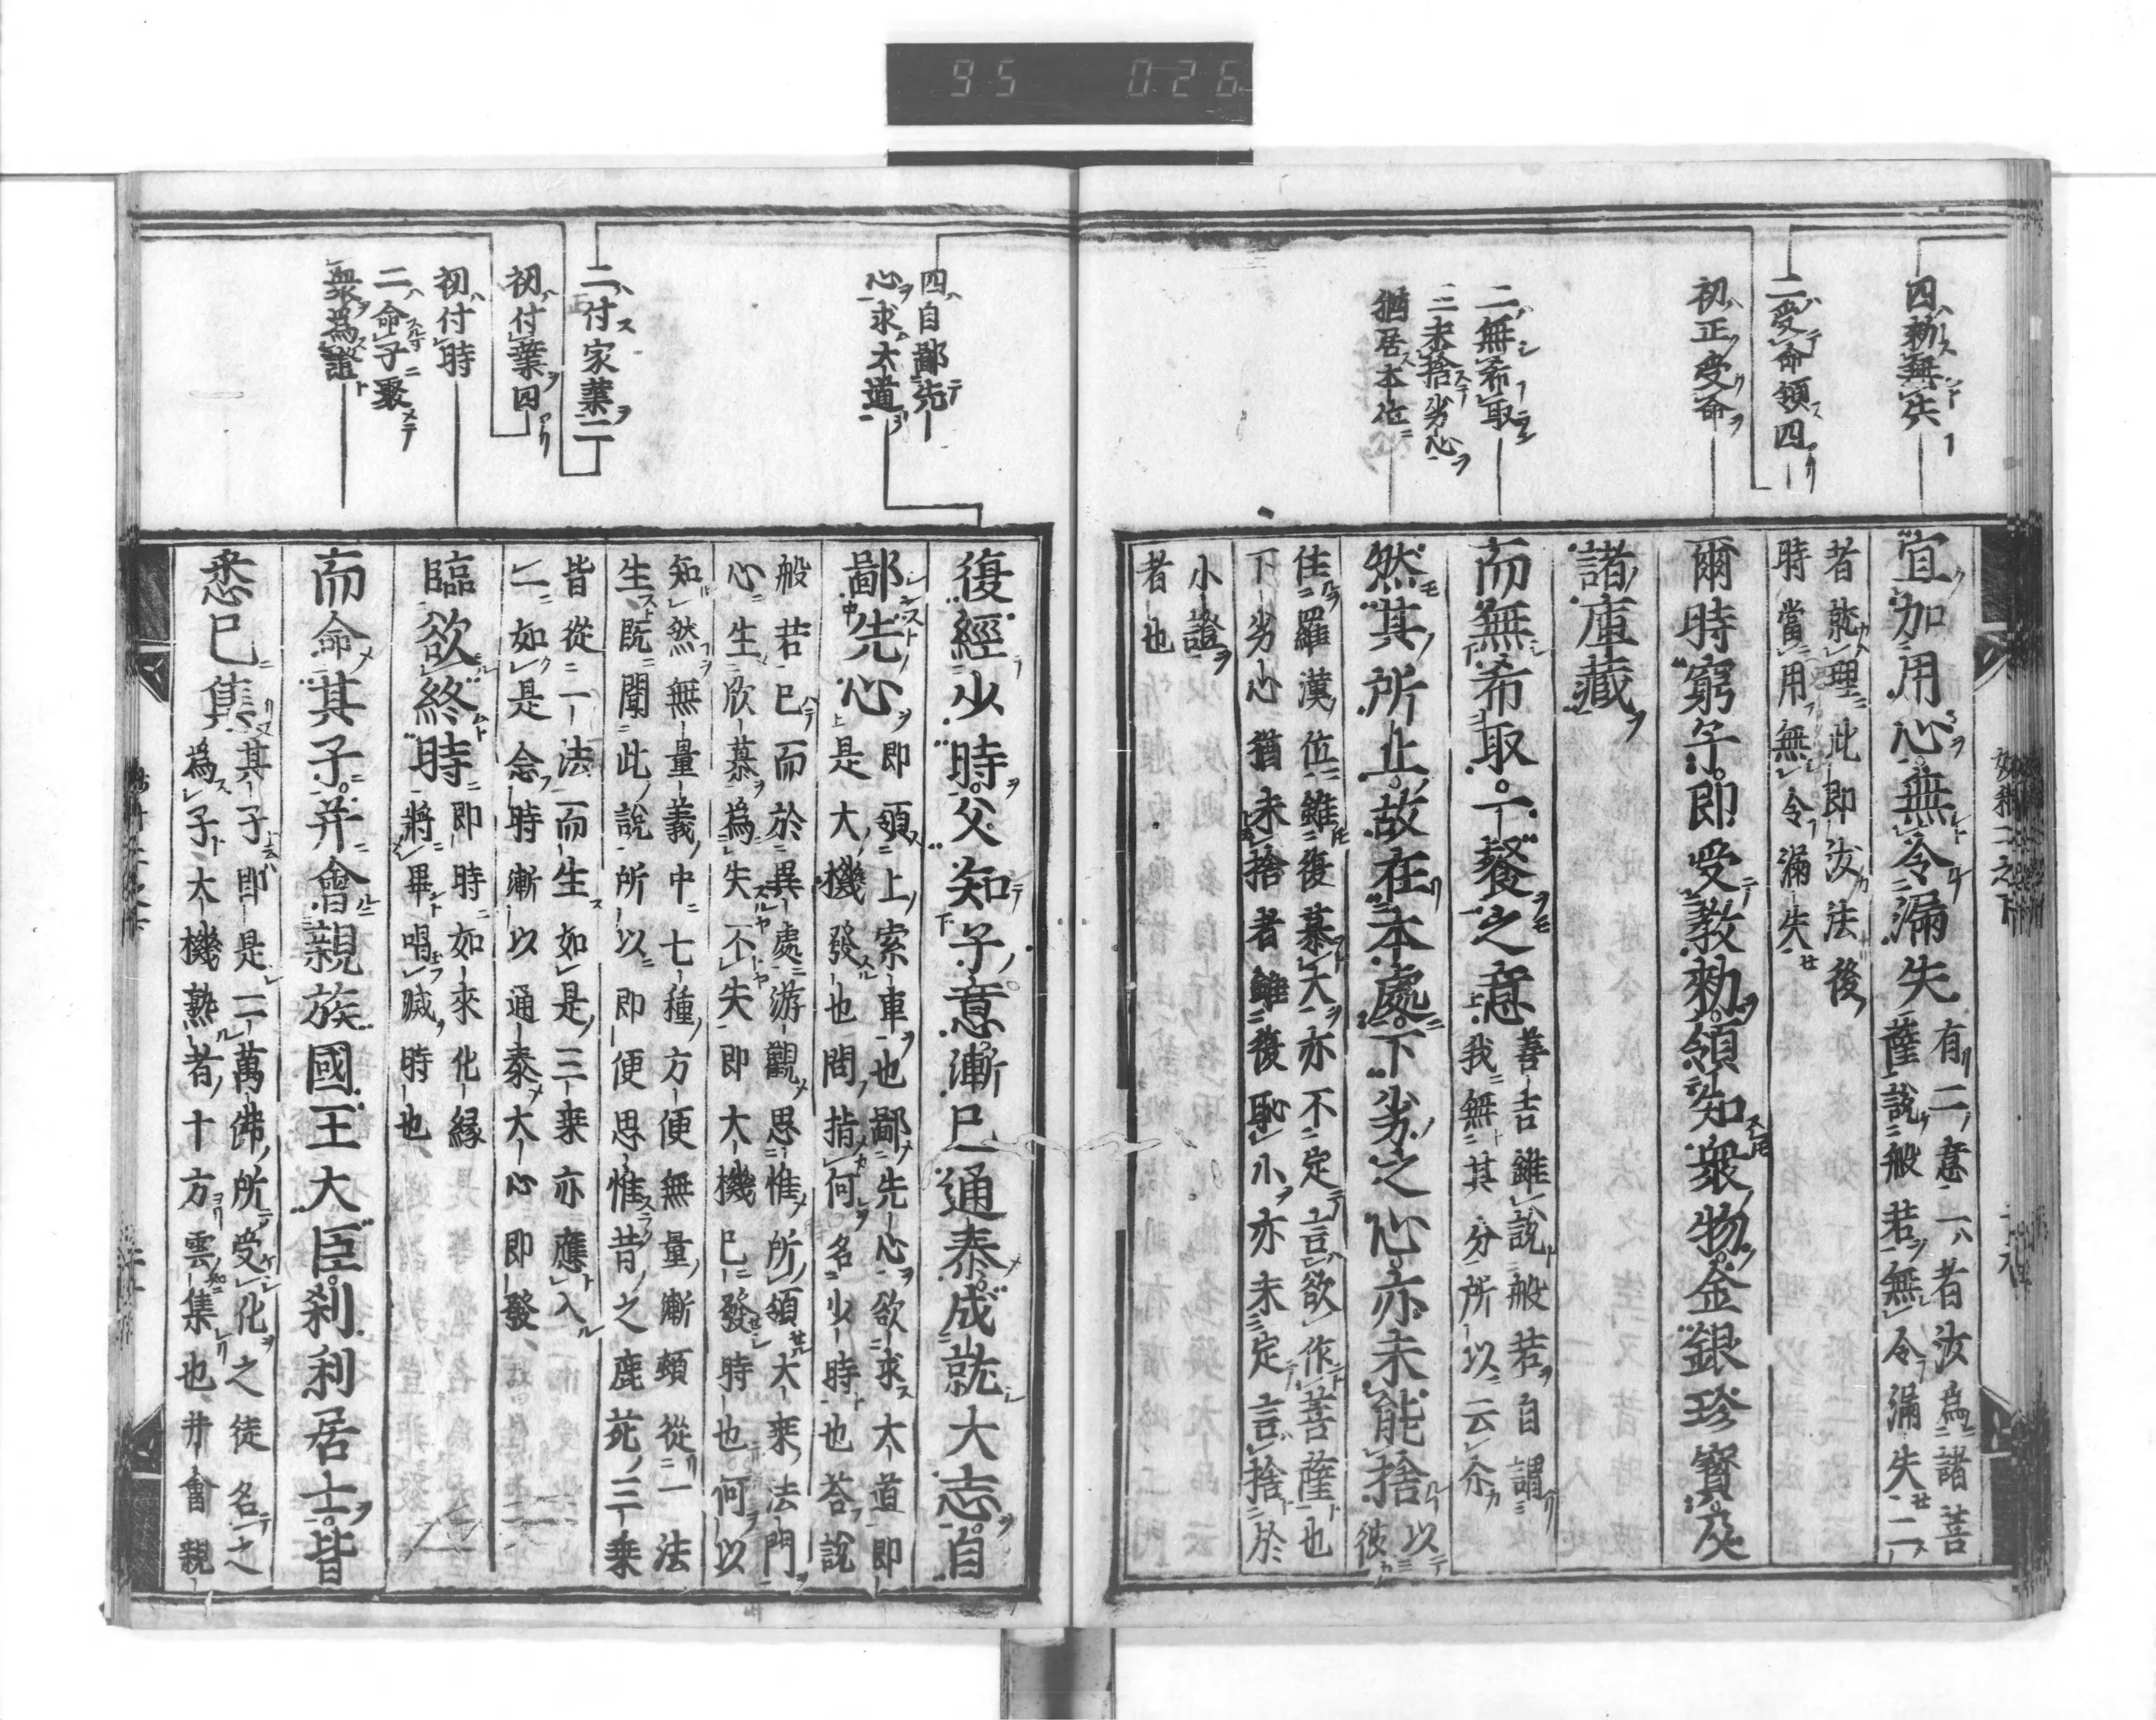 95 026
四勅無失
二受命領四
初正受命
二無希取
三未捨劣心
猶居本位
宜加用心無令漏失
有二意一者汝為諸菩
薩説般若無令漏失二
者就理此即汝法後
時當用無令漏失
爾時窮子即受教勅領知衆物金銀珍寶及
諸庫藏
而無希取一餐之意
善吉雖説般若自謂
我無其分所以云介
然其所止故在本處下劣之心亦未能捨
以
彼
住羅漢位雖復慕大亦不定言欲作菩薩也
下劣心猶未捨者雖復恥小亦未定言捨於
小證
者也
四自鄙先
心求大道
二付家業二
初付業四
初付時
二命子聚
衆為證
復經少時父知子意漸已通泰成就大志自
鄙先心
即領上索車也鄙先心欲求大道即
是大機發也問指何名少時也荅説
般若已而於異處游觀思惟所領大乗法門
心生欣慕為失不失即大機已發時也何以
知然無量義中七種方便無量漸頓從一法
生既聞此説所以即便思惟昔之鹿苑三乗
皆從一法而生如是三乗亦應入
一如是念時漸以通泰大心即發
臨欲終時
即時如來化縁
將畢唱滅時也
而命其子并會親族國王大臣刹利居士皆
悉已集
其子即是二萬佛所受化之徒名之
為子大機熟者十方雲集也并會親